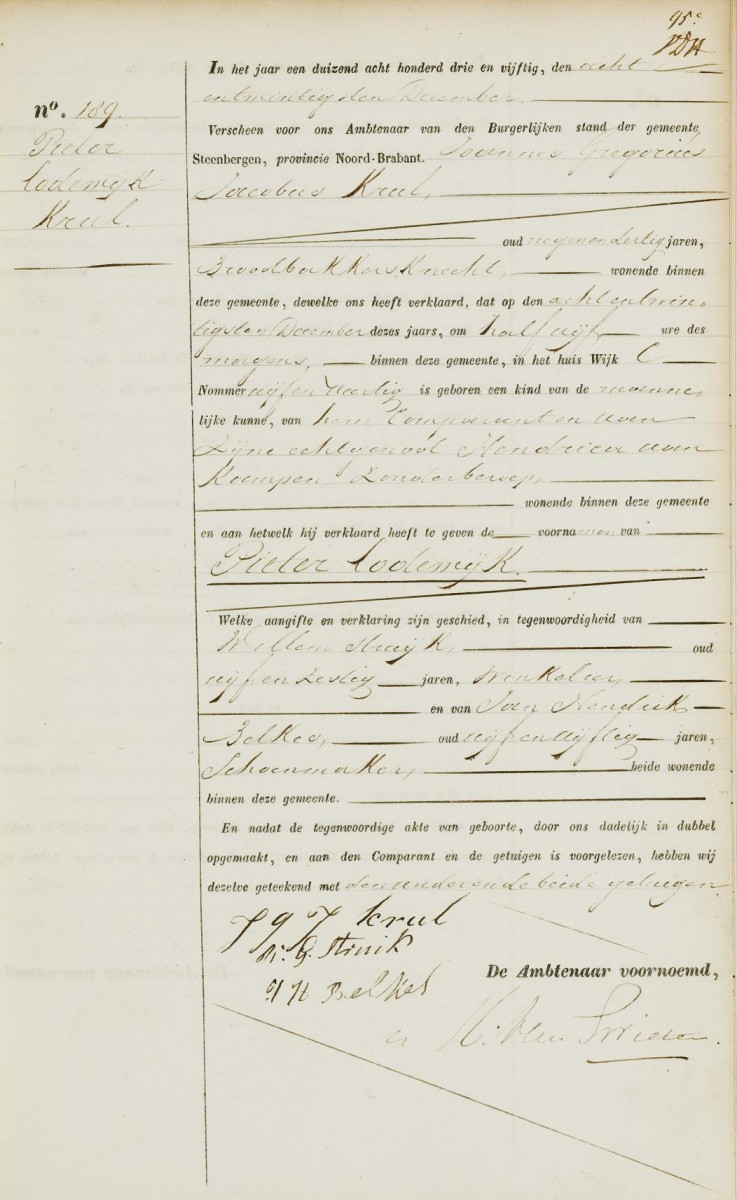 95e
nº. 189.
Pieter
Lodewijk
Krul.
In het jaar een duizend acht honderd drie en vijftig, den acht
entwintigsten December.
Verscheen voor ons Ambtenaar van den Burgerlijken stand der gemeente
Steenbergen, provincie Noord-Brabant. Joannes Gregorius
Jacobus Krul,
oud negenendertig jaren,
Broodbakkersknecht, wonende binnen
deze gemeente, dewelke ons heeft verklaard, dat op den achtentwin
tigsten December dezes jaars, om half vijf ure des
morgens, binnen deze gemeente, in het huis Wijk C
Nommer vijf en veertig is geboren een kind van de manne
lijke kunne, van hem Comparant en van
Zijne echtgenoot Hendrica van
Kaempen Zonder beroep,
wonende binnen deze gemeente
en aan hetwelk hij verklaard heeft te geven de voornamen van
Pieter Lodewijk.
Welke aangifte en verklaring zijn geschied, in tegenwoordigheid van
Willem Struijk, oud
vijf en Zestig jaren, Winkelier,
en van Jan Hendrik
Belkes, oud vijf en vijftig jaren,
Schoenmaker, beide wonende
binnen deze gemeente.
En nadat de tegenwoordige akte van geboorte, door ons dadelijk in dubbel
opgemaakt, en aan den Comparant en de getuigen is voorgelezen, hebben wij
dezelve geteekend met den eerste en de beide getuigen.
J G J Krul
Struik
J H Belkes
De Ambtenaar voornoemd,